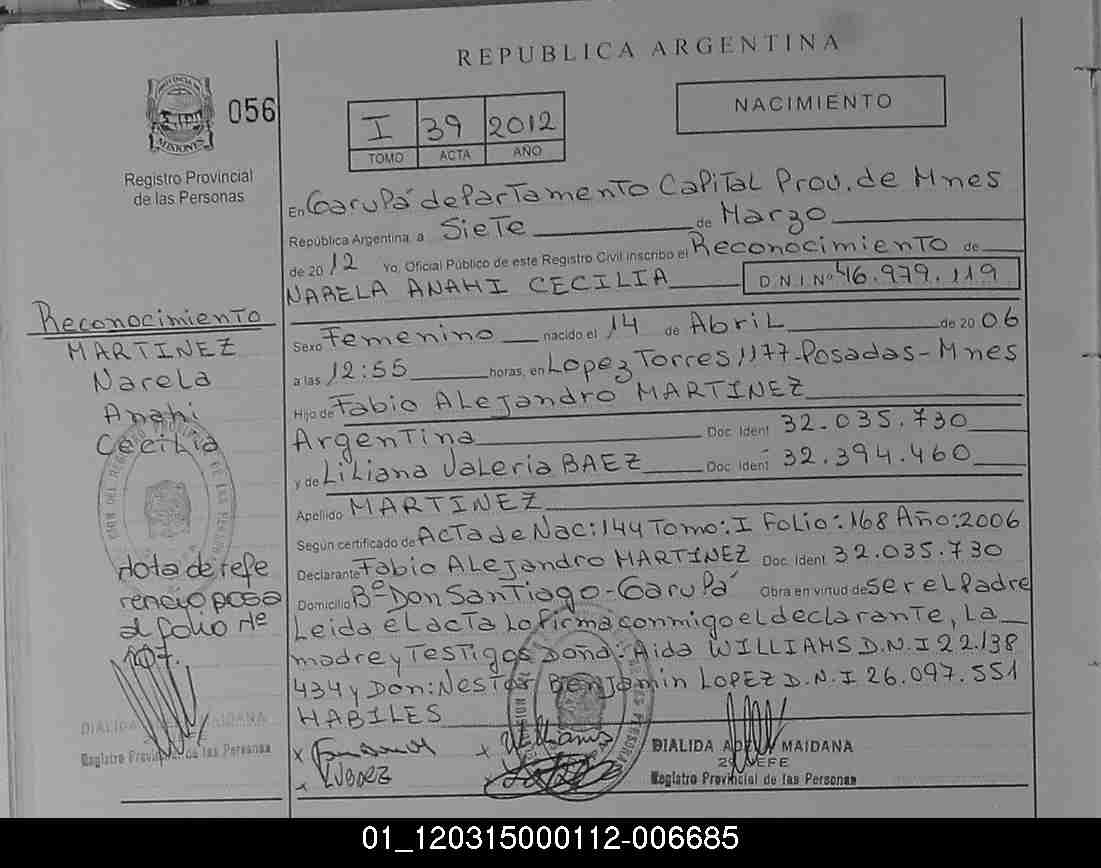 REPUBLICA ARGENTINA
PROVINCIA DE MISIONES
056
Registro Provincial
de las Personas
I 39 2012
TOMO ACTA AÑO
NACIMIENTO
En Garupá departamento Capital Prov. de Mnes
República Argentina, a Siete de Marzo
de 2012 Yo, Oficial Público de este Registro Civil inscribo el Reconocimiento de
NARELA ANAHI CECILIA D.N.I Nº 46.979.119
Sexo Femenino nacido el 14 de Abril de 2006
a las 12:55 horas, en Lopez Torres 1177-Posadas-Mnes
Hijo de Fabio Alejandro MARTINEZ
Argentina Doc. Ident 32.035.730
y de Liliana Valeria BAEZ Doc. Ident 32.394.460
Apellido MARTINEZ
Según certificado de Acta de Nac: 144 Tomo: I Folio: 168 Año: 2006
Declarante Fabio Alejandro MARTINEZ Doc. Ident 32.035.730
Domicilio Bº Don Santiago-Garupá Obra en virtud de ser el Padre
Leida el acta la firma conmigo el declarante, La
madre y Testigos Doña: Aida WILLIAMS D.N.I 22.138
434 y Don: Nestor Benjamin LOPEZ D.N.I 26.097.551
HABILES
Reconocimiento
MARTINEZ
Narela
Anahi
Cecilia
Nota de refe
rencia pasa
al folio Nº
107.
DIALIDA MAIDANA
Registro Provincial de las Personas
x
x LVBaez
x Williams
DIALIDA MAIDANA
JEFE
Registro Provincial de las Personas
01_120315000112-006685